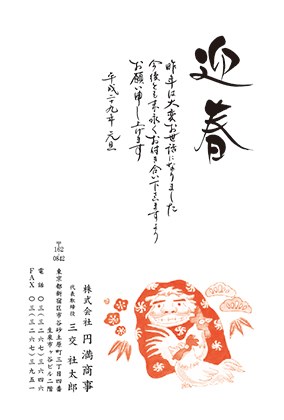 迎春
昨年は大変お世話になりました
今後とも末永くお付き合い下さいますよう
お願い申し上げます
平成二十九年 元旦
〒
162
0842
東京都新宿区市谷砂土原町三丁目四番
生泉市ヶ谷ビル二階
電話 〇三(三二六七)三六四六
FAX 〇三(三二六七)三九五一
株式会社 円満商事
代表取締役 三交社太郎